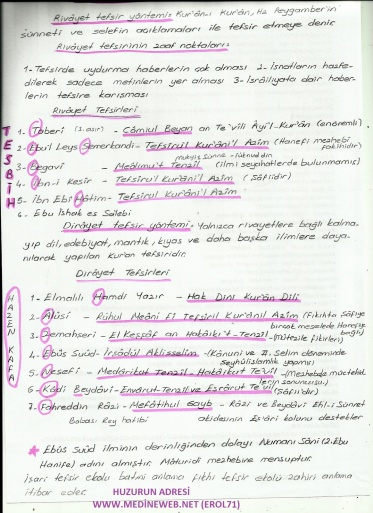 Rivâyet tefsir yöntemi: Kur'ân-ı Kur'ân, Hz Peygamber'in
sünneti ve selefin açıklamaları ile tefsir etmeye denir
Rivâyet tefsirinin zaaf noktaları:
1- Tefsirde uydurma haberlerin çok olması 2- İsnatların hazfe-
dilerek sadece metinlerin yer alması 3- İsrâiliyata dair haber-
lerin tefsire karışması
Rivâyet Tefsirleri
TESBİH
1- Taberi (3. asır) - Câmiul Beyan an Te'vîli Âyi'l-Kur'ân (en önemli)
2- Ebu'l Leys Semerkandi - Tefsîru'l Kur'âni'l Azîm (Hanefi mezhebi fakihidir)
3- Begavi - Meâlimu't Tenzîl - (ilmi seyahatlerde bulunmamış)
4- İbn-i Kesîr - Tefsîrul Kur'âni'l Azîm (Şâfiidir)
5- İbn Ebî Hâtim - Tefsîrul Kur'âni'l Azîm
6- Ebu İshak es Salebi
Dirâyet tefsir yöntemi - Yalnızca rivayetlere bağlı kalma-
yıp dil, edebiyat, mantık, kıyas ve daha başka ilimlere daya-
nılarak yapılan Kur'an tefsiridir.
Dirâyet Tefsirleri
HAZEN KAFA
1- Elmalılı Hamdi Yazır - Hak Dini Kur'ân Dili
2- Âlûsi - Rûhul Meâni fi Tefsîril Kur'ânil Azîm (Fıkıhta Şâfiye birçok meselede Hanefiye bağlı)
3- Zemahşeri - El Keşşâf an Hakâiki't-Tenzîl - (Mûtezile fikirleri)
4- Ebûs Suûd - İrşâdül Aklisselîm - (Kânuni ve II. Selim döneminde şeyhülislamlık yapmış)
5- Nesefi - Medârikut Tenzîl - Hakâikut Te'vîl - (Mezhebde müctehidlerin sonuncusu.)
6- Kâdi Beydâvi - Envârut-Tenzîl ve Esrârut Te'vîl (Şâfiidir)
7- Fahreddin Râzi - Mefâtihul Gayb - Râzi ve Beydâvi Ehl-i Sünnet
Babası Rey hatibi akidesinin Eş'âri kolunu destekler
Ebûs Suûd ilminin derinliğinden dolayı Numanı Sâni (2. Ebu
Hanife) adını almıştır. Mâturidi mezhebine mensuptur.
İşari tefsir ekolu batıni anlama fıkhi tefsir ekolü zahiri anlama
itibar eder.
HUZURUN ADRESİ
www.MEDİNEWEB.NET (EROL71)